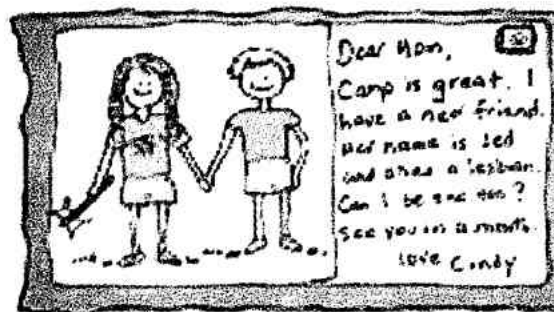 Dear Mom,
Camp is great. I
have a new friend.
Her name is
and shes a lesbian.
Can I be one Mom?
See you in a month.
Love Cindy